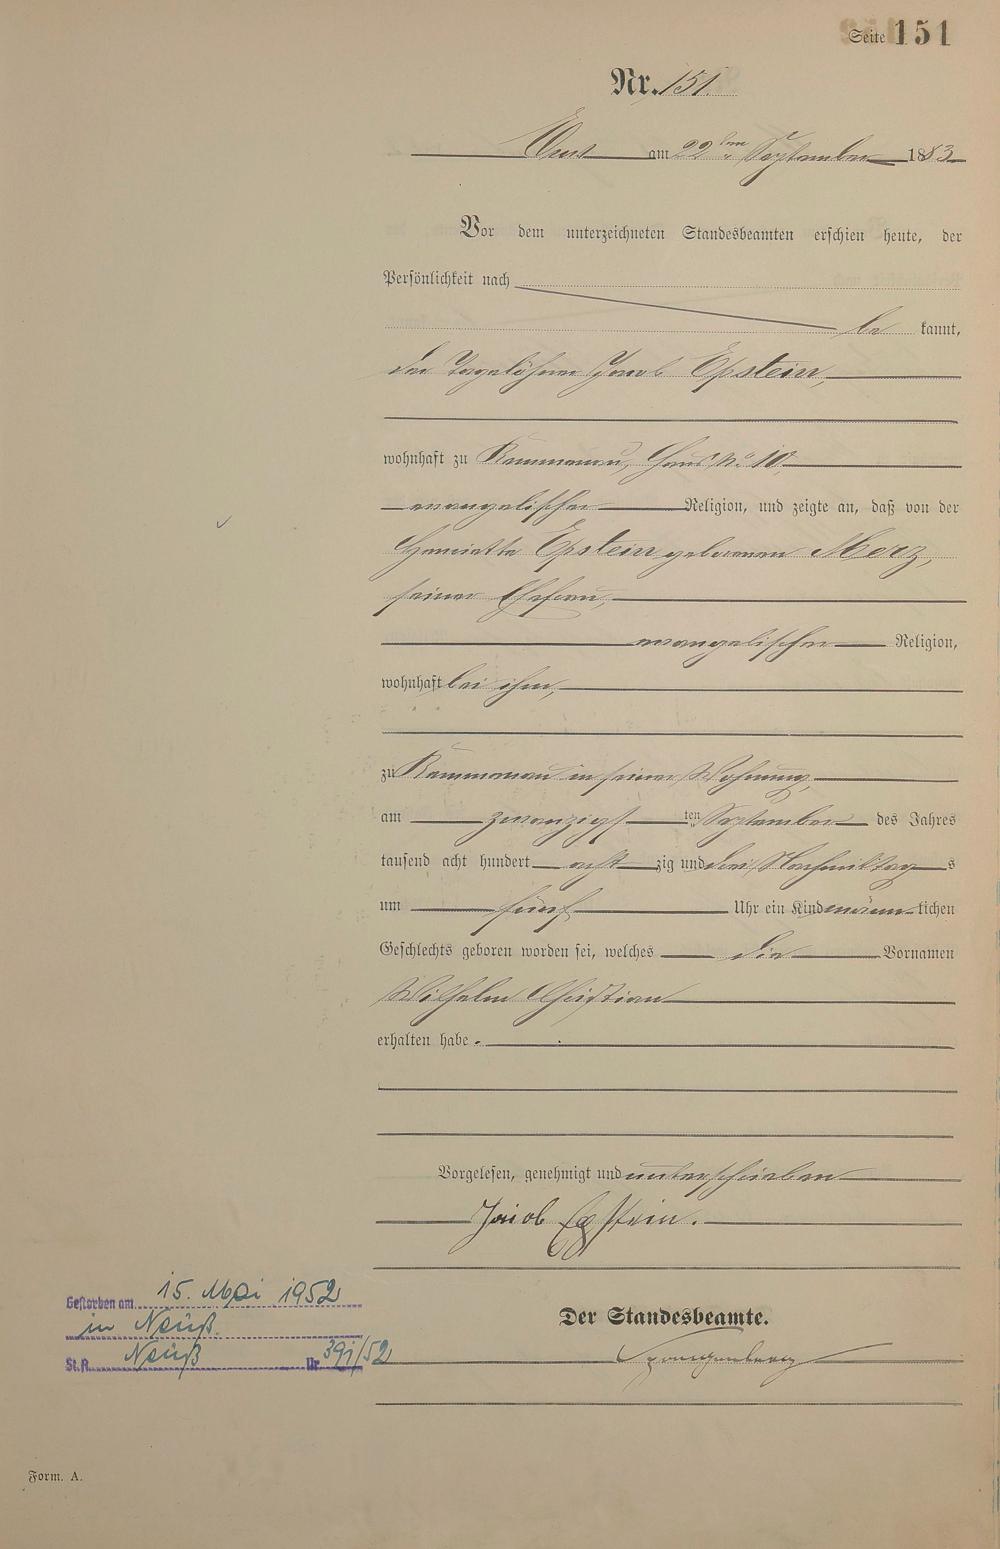 Seite 151
Nr. 151.
Ems am 22ten September 1883
Vor dem unterzeichneten Standesbeamten erschien heute, der
Persönlichkeit nach
be kannt,
der Tagelöhner Jacob Epstein,
wohnhaft zu Kemmenau, Haus No 10,
evangelischer Religion, und zeigte an, daß von der
Henriette Epstein geborenen Merz,
seiner Ehefrau,
evangelischer Religion,
wohnhaft bei ihm,
zu Kemmenau in seiner Wohnung,
am zwanzigsten September des Jahres
tausend acht hundert achtzig und drei Nachmittags
um fünf Uhr ein Kind männlichen
Geschlechts geboren worden sei, welches die Vornamen
Wilhelm Christian
erhalten habe.
Vorgelesen, genehmigt und unterschrieben
Jacob Epstein.
Der Standesbeamte.
Spangenberg
Gestorben am 15. Mai 1952
in Neuß.
St.A. Neuß Nr. 391/52
Form. A.